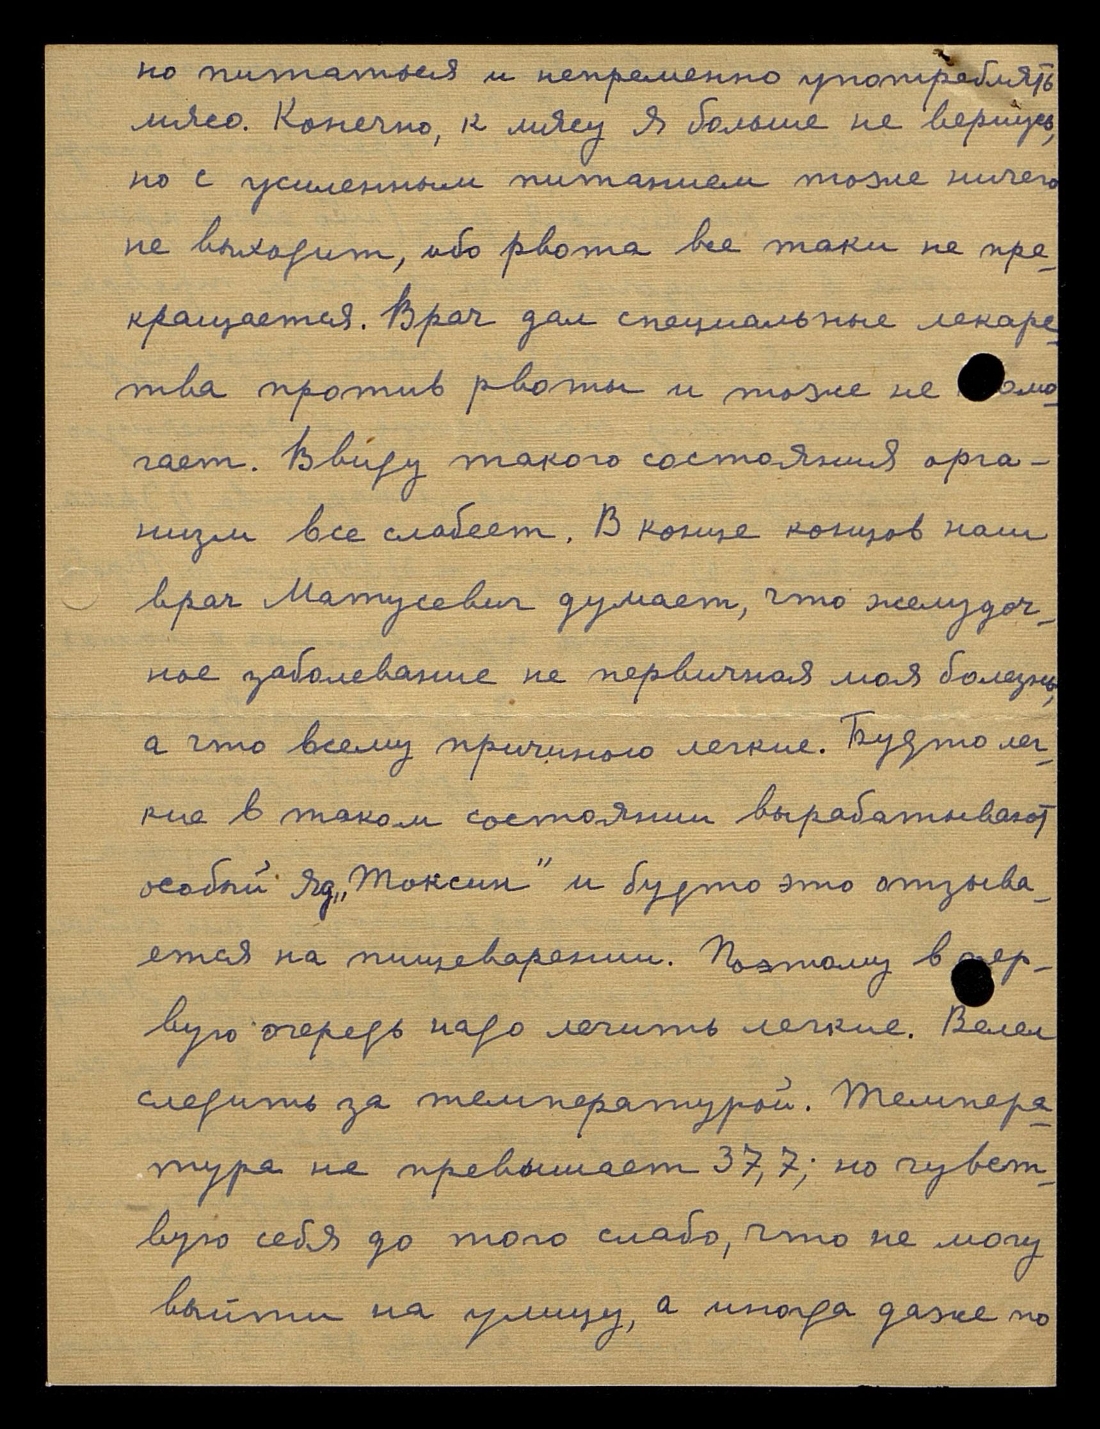 но питаться и непременно употреблять
мясо. Конечно, к мясу я больше не вернусь,
но с усиленным питанием тоже ничего
не выходит, ибо рвота все таки не пре-
кращается. Врач дал специальные лекарс-
тва против рвоты и тоже не помо-
гает. Ввиду такого состояния орга-
низм все слабеет. В конце концов наш
врач Матусевич думает, что желудоч-
ное заболевание не первичная моя болезнь,
а что всему причиною легкие. Будто лег-
кие в таком состоянии вырабатывают
особый яд „Токсин" и будто это отзыва-
ется на пищеварении. Поэтому в пер-
вую очередь надо лечить легкие. Велел
следить за температурой. Темпера-
тура не превышает 37,7; но чувст-
вую себя до того слабо, что не могу
выйти на улицу, а иногда даже по